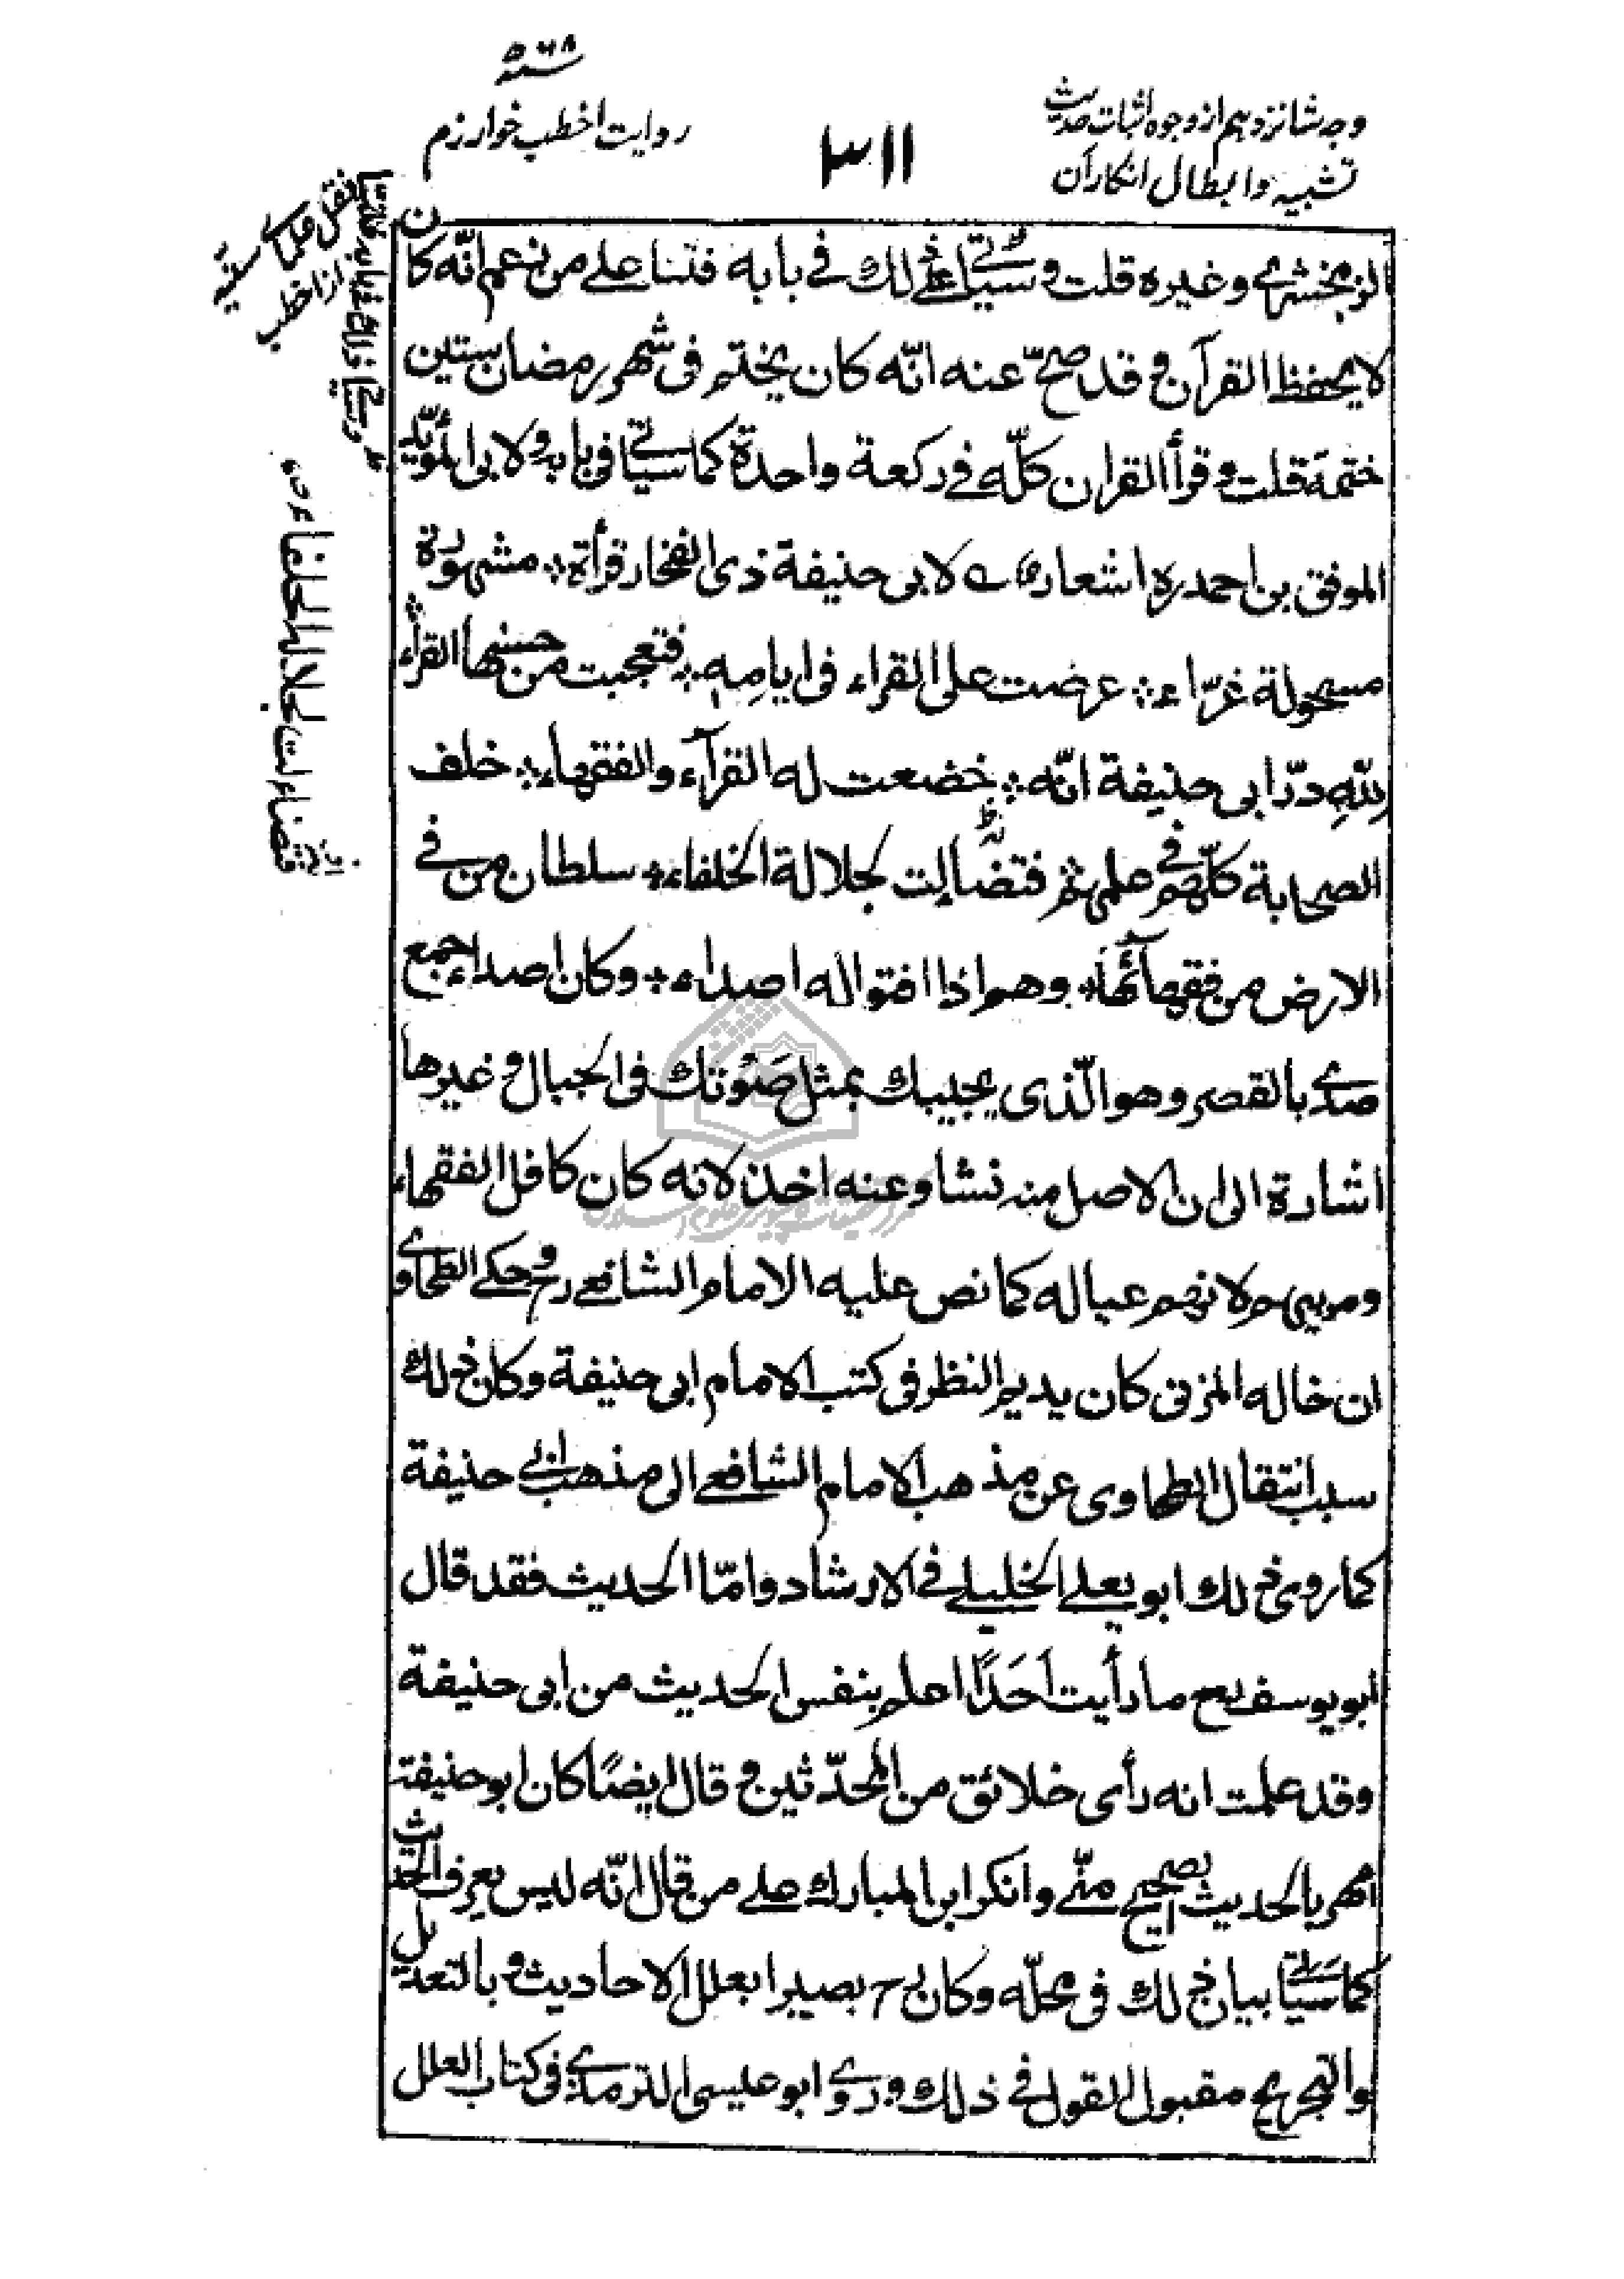 وجه شانزدهم از وجوه اثبات حدیث
تشبیه و ابطال انکار آن
۳۱۱
روایت اخطب خوارزم
نقل علمای سنیه
از اخطب
الزمخشری وغیره قلت و سیأتی ذلك فی بابه فتنا علی من زعم انّه کان
لا یحفظ القرآن و قد صحّ عنه انّه کان یختم فی شهر رمضان ستین
ختمة قلت و قرأ القران کلّه فی رکعة واحدة کما سیأتی فی بابه و لابی المؤید
الموفق بن احمد ره اشعار لابی حنیفة ذی الفخار قرأة ؞ مشهورة
مسحولة غرّاء ؞ عرضت علی القراء فی ایامه ؞ فتعجبت من حسنها القراء
لله درّ ابی حنیفة انّه ؞ خضعت له القرآء والفقهاء ؞ خلف
الصحابة کلّهم فی علمهم فتضاءلت لجلالة الخلفاء ؞ سلطان من فی
الارض من فقهائها ؞ وهم اذا افتوا له اصداء ؞ وکان اصداء جمع
صدی بالقصر وهو الّذی یجیبك بمثل صَوْتك فی الجبال و غیرها
اشارة الی ان الاصل منه نشا وعنه اخذ لانه کان کافل الفقهاء
ومربیهم لانهم عیاله کما نص علیه الامام الشافعی رح و حکی الطحاوی
ان خاله المزنی کان یدیم النظر فی کتب الامام ابی حنیفة وکان ذلك
سبب انتقال الطحاوی عن مذهب الامام الشافعی الی مذهب ابی حنیفة
کما روی ذلك ابو یعلی الخلیلی فی الارشاد وامّا الحدیث فقد قال
ابو یوسف رح ما رأیت اَحَدًا اعلم بنفس الحدیث من ابی حنیفة
وقد علمت انه رأی خلائق من المحدّثین و قال ایضًا کان ابو حنیفة
ابصر بالحدیث الصحیح منّی وانکر ابن المبارك علی من قال انّه لیس یعرف الحدیث
کما سیأتی بیان ذلك فی محلّه وکان رح بصیرا بعلل الاحادیث و بالتعدیل
والتجریح مقبول القول فی ذلك و روی ابو عیسی الترمذی فی کتاب العلل